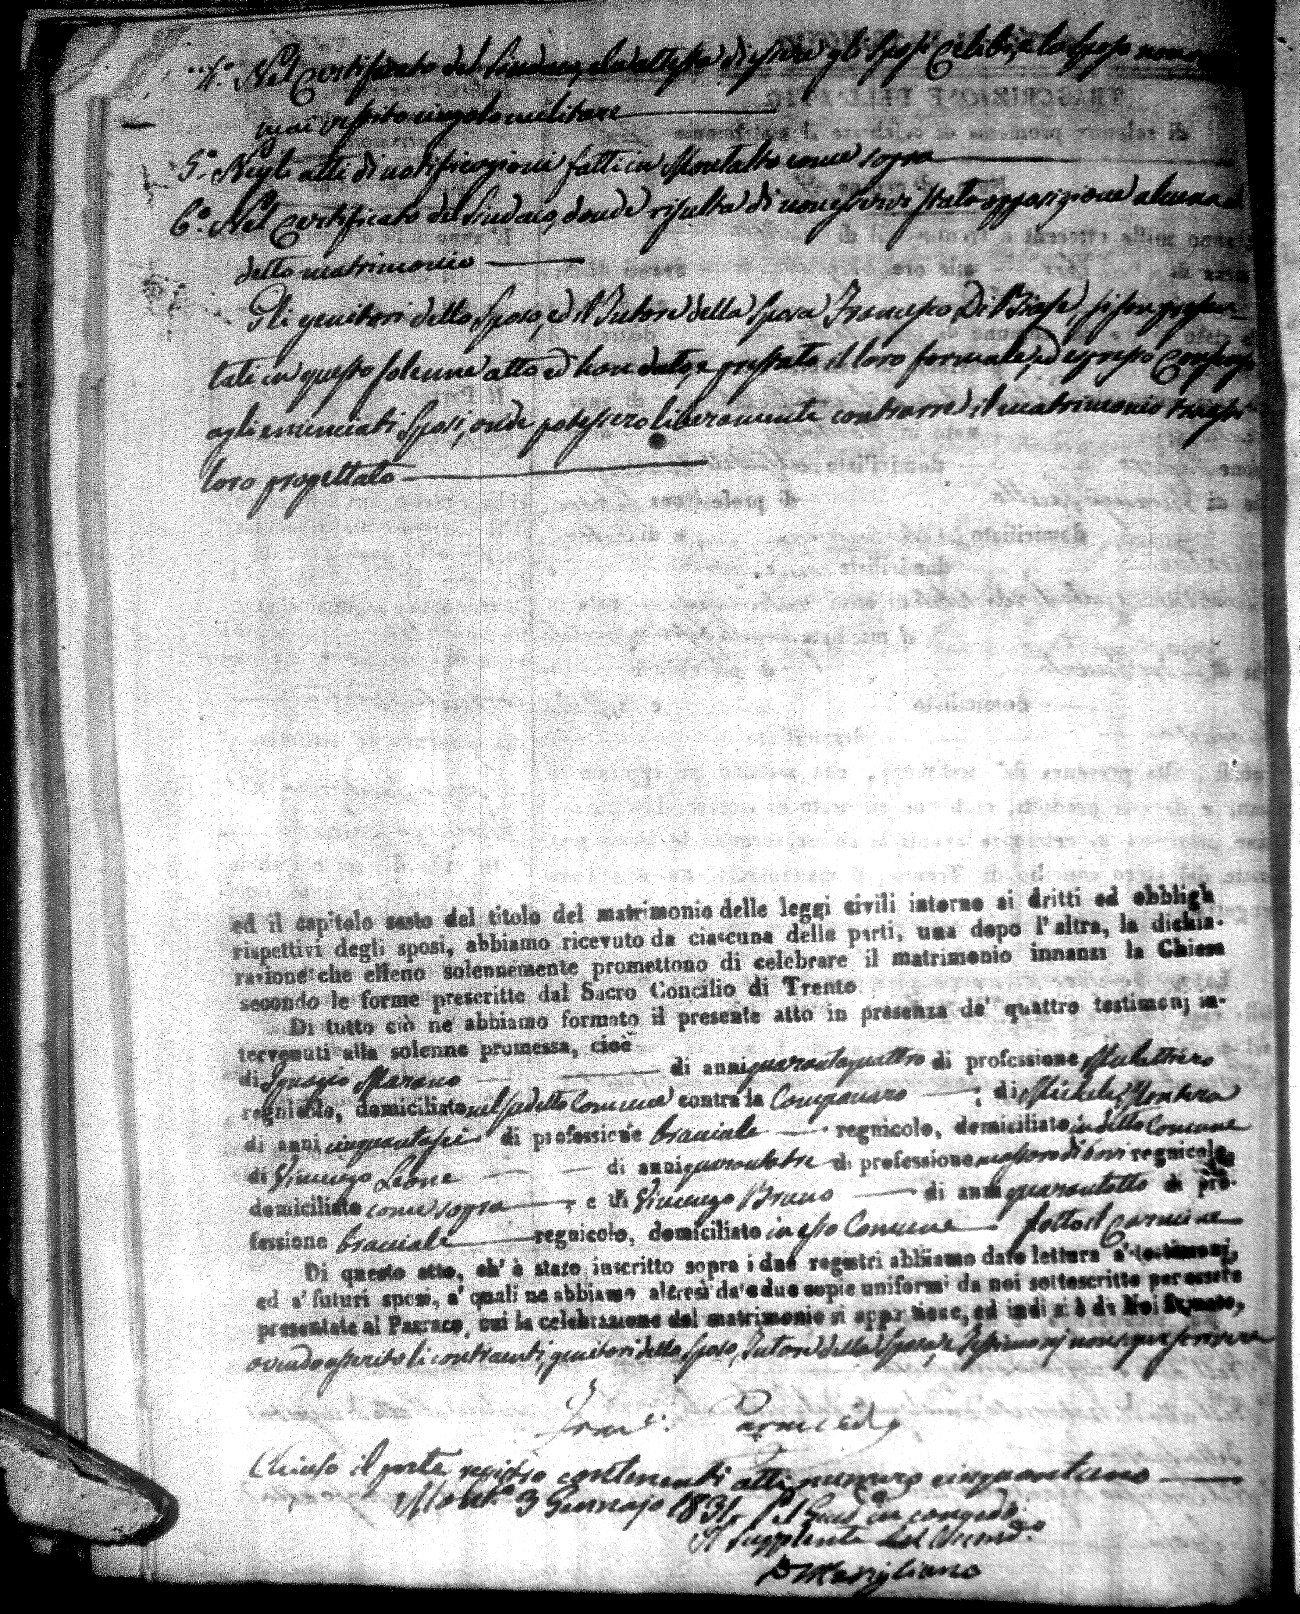 4.° Nel Certificato del Sindaco, che attesta di essere gli Sposi Celibi, e lo Sposo non
mai vestito cingolo militare
5.° Negli atti di notificazioni fatti in Montalto come sopra
6.° Nel Certificato del Sindaco, donde risulta di non esservi stata opposizione alcuna al
detto matrimonio
Gli genitori dello Sposo, ed il Tutore della Sposa Francesco Di Biase, si son presen-
tati in questo solenne atto ed han dato, e prestato il loro formale, ed espresso Consenso
agli enunciati Sposi, onde potessero liberamente contrarre il matrimonio tra essi
loro progettato
ed il capitolo sesto del titolo del matrimonio delle leggi civili intorno ai dritti ed obblighi
rispettivi degli sposi, abbiamo ricevuto da ciascuna delle parti, una dopo l'altra, la dichia-
razione che elleno solennemente promettono di celebrare il matrimonio innanzi la Chiesa
secondo le forme prescritte dal Sacro Concilio di Trento.
Di tutto ciò ne abbiamo formato il presente atto in presenza de' quattro testimonj in-
tervenuti alla solenne promessa, cioè
di Ignazio Marano di anni quarantaquattro di professione Mulattiero
regnicolo, domiciliato nel sudetto Comune contra la ; di Michele
di anni cinquantasei di professione bracciale regnicolo, domiciliato in detto Comune
di Vincenzo Leone di anni quarantatre di professione regnicolo,
domiciliato come sopra , e di Vincenzo Bruno di anni quarantotto di pro-
fessione bracciale regnicolo, domiciliato in esso Comune sotto il Carmine
Di questo atto, ch' è stato inscritto sopra i due registri abbiamo dato lettura a' testimonj,
ed a' futuri sposi, a' quali ne abbiamo altresì date due copie uniformi da noi sottoscritte per essere
presentate al Parroco, cui la celebrazione del matrimonio si appartiene, ed indi si è da Noi firmato,
avendo asserito li contraenti, genitori dello Sposo, Tutore della Sposa, e Testimonj non saper scrivere
Chiuso il p[rese]nte registro contenenti atti numero cinquantuno
Mont.° 3 Gennajo 1831. Pel Giud.e in congedo
Il Supplente del Circond.°
Marigliano